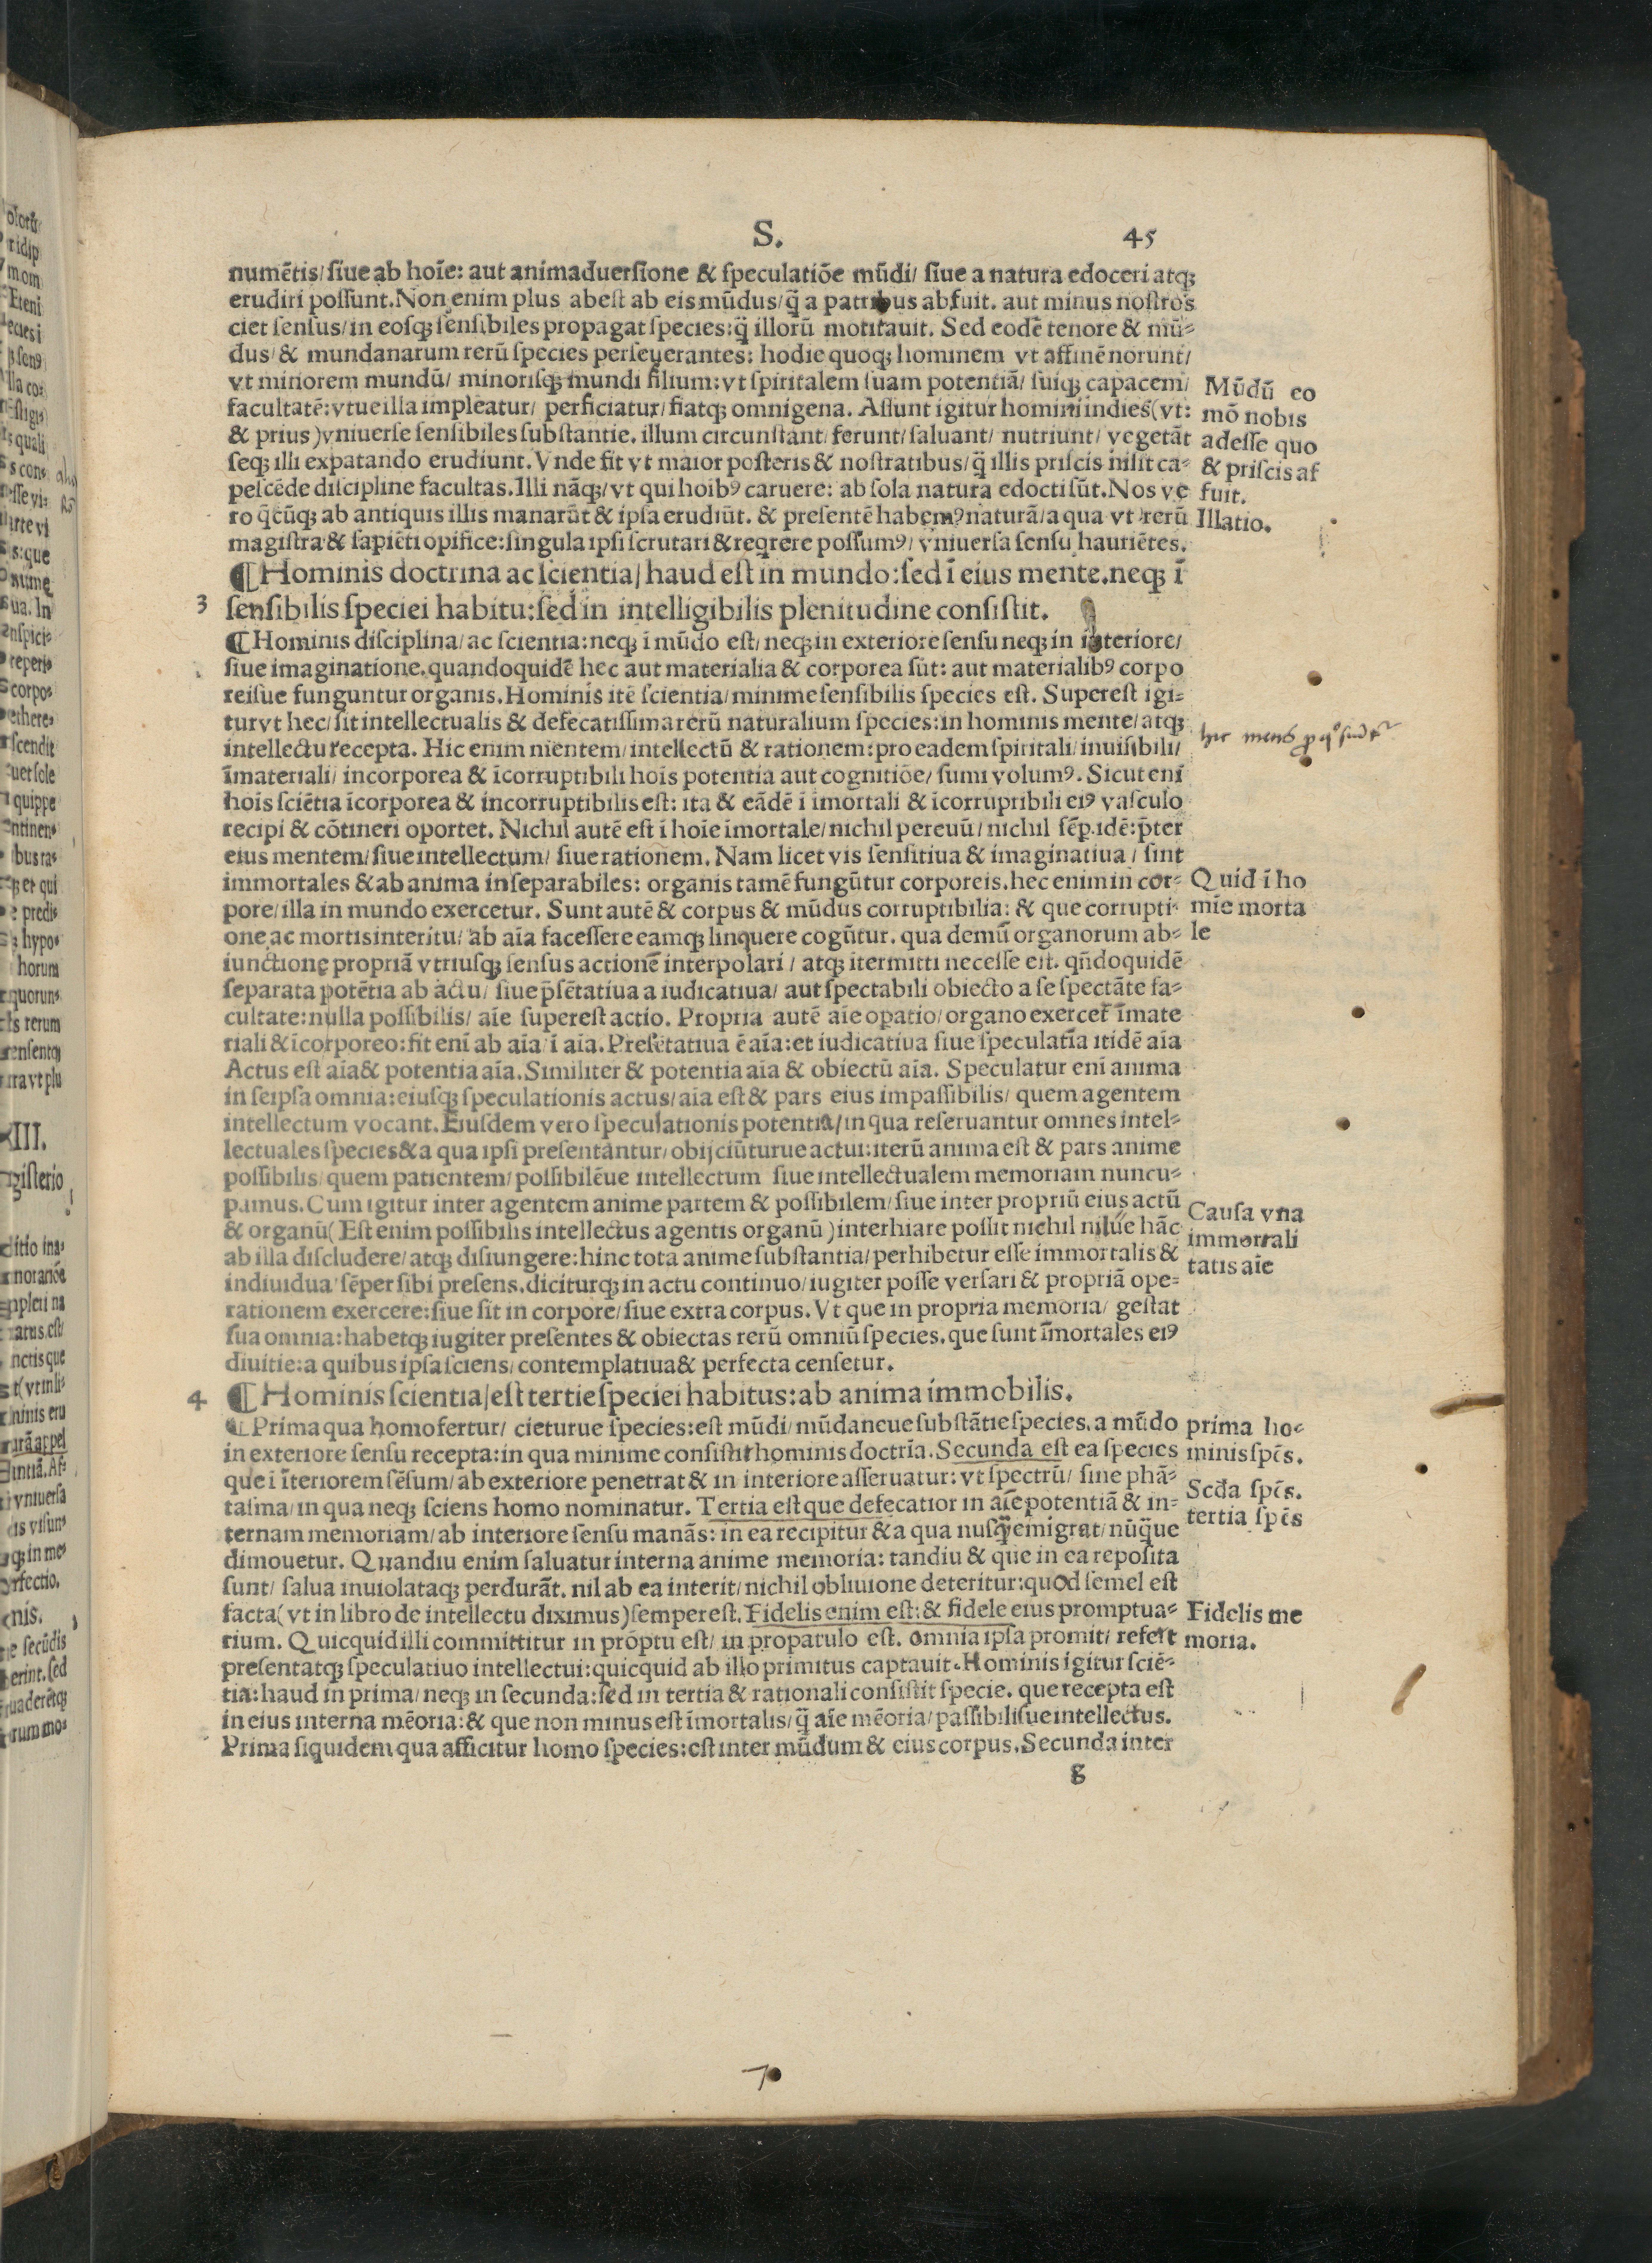 S. 45
numētis/ ſiue ab hoīe: aut animaduerſione & ſpeculatiōe mūdi/ ſiue a natura edoceri atqꝫ
erudiri poſſunt. Non enim plus abeſt ab eis mūdus/ q̄ a patribus abfuit. aut minus noſtros
ciet ſenſus/ in eoſqꝫ ſenſibiles propagat ſpecies: q̄ illorū motitauit. Sed eodē tenore & mū⸗
dus/ & mundanarum rerū ſpecies perſeuerantes: hodie quoqꝫ hominem vt affinē norunt/
vt minorem mundū/ minoriſqꝫ mundi filium: vt ſpiritalem ſuam potentiā/ ſuiqꝫ capacem/
facultatē: vtue illa impleatur/ perficiatur/ fiatqꝫ omnigena. Aſſunt igitur homini indies (vt:
& prius) vniuerſe ſenſibiles ſubſtantie. illum circunſtant/ ferunt/ ſaluant/ nutriunt/ vegetāt
ſeqꝫ illi expatando erudiunt. Vnde fit vt maior poſteris & noſtratibus/ q̄ illis priſcis inſit ca⸗
peſcēde diſcipline facultas. Illi nāqꝫ/ vt qui hoibꝰ caruere: ab ſola natura edocti ſūt. Nos ve
ro q̄cūqꝫ ab antiquis illis manarūt & ipſa erudiūt. & preſentē habemꝰ naturā/ a qua vt rerū
magiſtra & ſapiēti opifice: ſingula ipſi ſcrutari & reqrere poſſumꝰ/ vniuerſa ſenſu hauriētes.
Mūdū eo
mō nobis
adeſſe quo
& priſcis af
fuit.
Illatio.
¶ Hominis doctrina ac ſcientia/ haud eſt in mundo: ſed ī eius mente. neqꝫ ī
3 ſenſibilis ſpeciei habitu: ſed in intelligibilis plenitudine conſiſtit.
¶ Hominis diſciplina/ ac ſcientia: neqꝫ ī mūdo eſt/ neqꝫ in exteriore ſenſu neqꝫ in interiore/
ſiue imaginatione. quandoquidē hec aut materialia & corporea ſūt: aut materialibꝰ corpo
reiſue funguntur organis. Hominis itē ſcientia/ minime ſenſibilis ſpecies eſt. Supereſt igi⸗
tur vt hec/ ſit intellectualis & defecatiſſima rerū naturalium ſpecies: in hominis mente/ atqꝫ
intellectu recepta. Hic enim mentem/ intellectū & rationem: pro eadem ſpiritali/ inuiſibili/
īmateriali/ incorporea & īcorruptibili hoīs potentia aut cognitiōe/ ſumi volumꝰ. Sicut enī
hoīs ſciētia īcorporea & incorruptibilis eſt: ita & eādē ī imortali & īcorruptibili eiꝰ vaſculo
recipi & cōtineri oportet. Nichil autē eſt ī hoīe imortale/ nichil pereuū/ nichil ſēp. idē: p̄ter
eius mentem/ ſiue intellectum/ ſiue rationem. Nam licet vis ſenſitiua & imaginatiua/ ſint
immortales & ab anima inſeparabiles: organis tamē fungūtur corporeis. hec enim in cor⸗
pore/ illa in mundo exercetur. Sunt autē & corpus & mūdus corruptibilia: & que corrupti⸗
one ac mortis interitu/ ab aīa faceſſere eamqꝫ linquere cogūtur. qua demū organorum ab⸗
iunctione propriā vtriuſqꝫ ſenſus actionē interpolari/ atqꝫ itermitti neceſſe eſt. qn̄doquidē
ſeparata potētia ab actu/ ſiue p̄ſētatiua a iudicatiua/ aut ſpectabili obiecto a ſe ſpectāte fa⸗
cultate: nulla poſſibilis/ aīe ſupereſt actio. Propria autē aīe opatio/ organo exercet̄ īmate
riali & īcorporeo: fit enī ab aīa/ ī aīa. Preſētatiua ē aīa: et iudicatiua ſiue ſpeculatīa itidē aīa
Actus eſt aīa & potentia aīa. Similiter & potentia aīa & obiectū aīa. Speculatur enī anima
in ſeipſa omnia: eiuſqꝫ ſpeculationis actus/ aīa eſt & pars eius impaſſibilis/ quem agentem
intellectum vocant. Eiuſdem vero ſpeculationis potentia/ in qua reſeruantur omnes intel⸗
lectuales ſpecies & a qua ipſi preſentantur/ obijciūturue actui: iterū anima eſt & pars anime
poſſibilis/ quem patientem/ poſſibilēue intellectum ſiue intellectualem memoriam nuncu⸗
pamus. Cum igitur inter agentem anime partem & poſſibilem/ ſiue inter propriū eius actū
& organū (Eſt enim poſſibilis intellectus agentis organū) interhiare poſſit nichil nilue hāc
ab illa diſcludere/ atqꝫ diſiungere: hinc tota anime ſubſtantia/ perhibetur eſſe immortalis &
indiuidua/ ſēper ſibi preſens. diciturqꝫ in actu continuo/ iugiter poſſe verſari & propriā ope⸗
rationem exercere: ſiue ſit in corpore/ ſiue extra corpus. Vt que in propria memoria/ geſtat
ſua omnia: habetqꝫ iugiter preſentes & obiectas rerū omniū ſpecies. que ſunt īmortales eiꝰ
diuitie: a quibus ipſa ſciens/ contemplatiua & perfecta cenſetur.
hic mens
Quid ī ho
mīe morta
le
Cauſa vna
immortali
tatis aīe
4 ¶ Hominis ſcientia/ eſt tertie ſpeciei habitus: ab anima immobilis.
¶ Prima qua homo fertur/ cieturue ſpecies: eſt mūdi/ mūdaneue ſubſtātie ſpecies. a mūdo
in exteriore ſenſu recepta: in qua minime conſiſtit hominis doctrīa. Secunda eſt ea ſpecies
que ī īteriorem ſēſum/ ab exteriore penetrat & in interiore aſſeruatur: vt ſpectrū/ ſine phā⸗
taſma/ in qua neqꝫ ſciens homo nominatur. Tertia eſt que defecatior in aīe potentiā & in⸗
ternam memoriam/ ab interiore ſenſu manās: in ea recipitur & a qua nuſq̄ emigrat/ nūq̄ue
dimouetur. Quandiu enim ſaluatur interna anime memoria: tandiu & que in ea repoſita
ſunt/ ſalua inuiolataqꝫ perdurāt. nil ab ea interit/ nichil obliuione deteritur: quod ſemel eſt
facta (vt in libro de intellectu diximus) ſemper eſt. Fidelis enim eſt: & fidele eius promptua⸗
rium. Quicquid illi committitur in prōptu eſt/ in propatulo eſt. omnia ipſa promit/ refert
preſentatqꝫ ſpeculatiuo intellectui: quicquid ab illo primitus captauit. Hominis igitur ſciē⸗
tia: haud in prima/ neqꝫ in ſecunda: ſed in tertia & rationali conſiſtit ſpecie. que recepta eſt
in eius interna mēoria: & que non minus eſt īmortalis/ q̄ aīe mēoria/ paſſibiliſue intellectus.
Prima ſiquidem qua afficitur homo ſpecies: eſt inter mūdum & eius corpus. Secunda inter
prima ho⸗
minis ſpēs.
Scd̄a ſpēs.
tertia ſpēs
Fidelis me
moria.
g